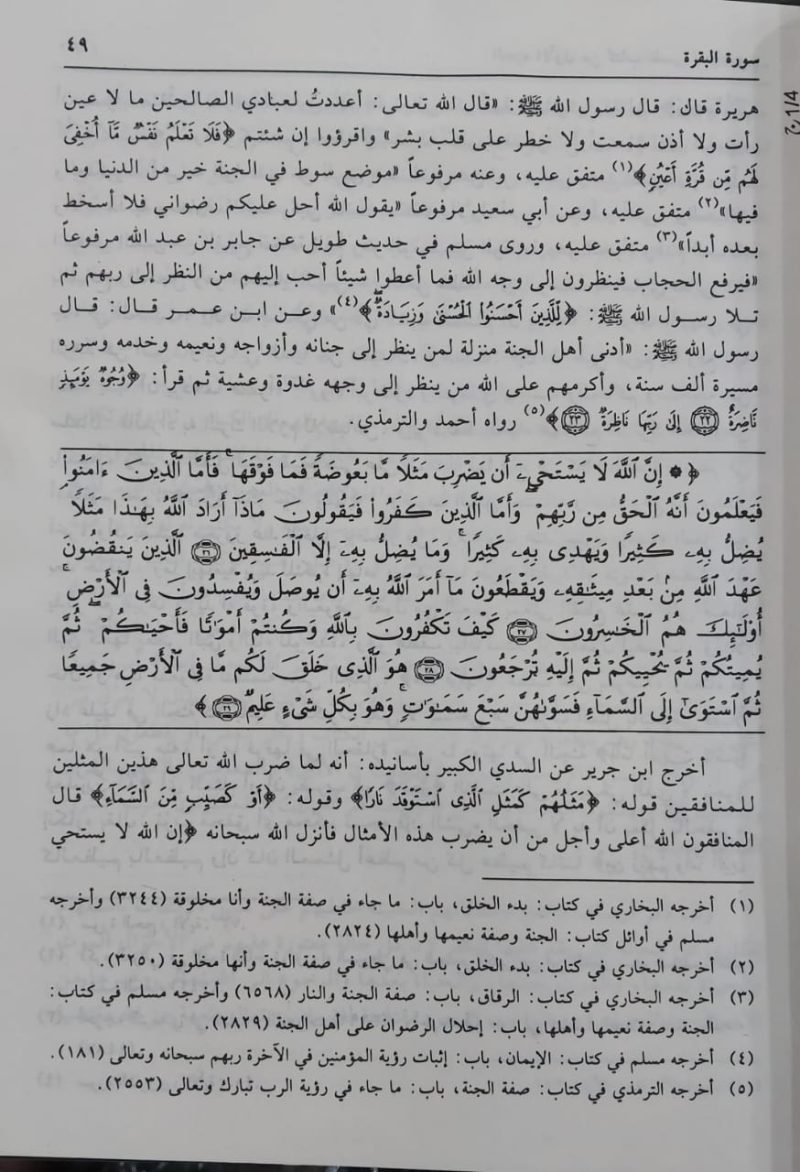 سورة البقرة
٤٩
هريرة قال: قال رسول الله ﷺ: «قال الله تعالى: أعددتُ لعبادي الصالحين ما لا عين
رأت ولا أذن سمعت ولا خطر على قلب بشر» واقرؤوا إن شئتم ﴿فَلَا تَعْلَمُ نَفْسٌ مَّآ أُخْفِىَ
لَهُم مِّن قُرَّةِ أَعْيُنٍ﴾(١) متفق عليه، وعنه مرفوعاً «موضع سوط في الجنة خير من الدنيا وما
فيها»(٢) متفق عليه، وعن أبي سعيد مرفوعاً «يقول الله أحل عليكم رضواني فلا أسخط
بعده أبداً»(٣) متفق عليه، وروى مسلم في حديث طويل عن جابر بن عبد الله مرفوعاً
«فيرفع الحجاب فينظرون إلى وجه الله فما أعطوا شيئاً أحب إليهم من النظر إلى ربهم ثم
تلا رسول الله ﷺ: ﴿لِّلَّذِينَ أَحْسَنُوا۟ الْحُسْنَىٰ وَزِيَادَةٌ﴾(٤)» وعن ابن عمر قال: قال
رسول الله ﷺ: «أدنى أهل الجنة منزلة لمن ينظر إلى جنانه وأزواجه ونعيمه وخدمه وسرره
مسيرة ألف سنة، وأكرمهم على الله من ينظر إلى وجهه غدوة وعشية ثم قرأ: ﴿وُجُوهٌ يَوْمَئِذٍ
نَّاضِرَةٌ ٢٢ إِلَىٰ رَبِّهَا نَاظِرَةٌ ٢٣﴾(٥) رواه أحمد والترمذي.
﴿۞ إِنَّ اللَّهَ لَا يَسْتَحْىِۦٓ أَن يَضْرِبَ مَثَلًا مَّا بَعُوضَةً فَمَا فَوْقَهَا ۚ فَأَمَّا الَّذِينَ ءَامَنُوا۟
فَيَعْلَمُونَ أَنَّهُ الْحَقُّ مِن رَّبِّهِمْ ۖ وَأَمَّا الَّذِينَ كَفَرُوا۟ فَيَقُولُونَ مَاذَآ أَرَادَ اللَّهُ بِهَٰذَا مَثَلًا ۘ
يُضِلُّ بِهِۦ كَثِيرًا وَيَهْدِى بِهِۦ كَثِيرًا ۚ وَمَا يُضِلُّ بِهِۦٓ إِلَّا الْفَٰسِقِينَ ٢٦ الَّذِينَ يَنقُضُونَ
عَهْدَ اللَّهِ مِنۢ بَعْدِ مِيثَٰقِهِۦ وَيَقْطَعُونَ مَآ أَمَرَ اللَّهُ بِهِۦٓ أَن يُوصَلَ وَيُفْسِدُونَ فِى الْأَرْضِ ۚ
أُو۟لَٰٓئِكَ هُمُ الْخَٰسِرُونَ ٢٧ كَيْفَ تَكْفُرُونَ بِاللَّهِ وَكُنتُمْ أَمْوَٰتًا فَأَحْيَٰكُمْ ۖ ثُمَّ
يُمِيتُكُمْ ثُمَّ يُحْيِيكُمْ ثُمَّ إِلَيْهِ تُرْجَعُونَ ٢٨ هُوَ الَّذِى خَلَقَ لَكُم مَّا فِى الْأَرْضِ جَمِيعًا
ثُمَّ اسْتَوَىٰٓ إِلَى السَّمَآءِ فَسَوَّىٰهُنَّ سَبْعَ سَمَٰوَٰتٍ ۚ وَهُوَ بِكُلِّ شَىْءٍ عَلِيمٌ ٢٩﴾
أخرج ابن جرير عن السدي الكبير بأسانيده: أنه لما ضرب الله تعالى هذين المثلين
للمنافقين قوله: ﴿مَثَلُهُمْ كَمَثَلِ الَّذِى اسْتَوْقَدَ نَارًا﴾ وقوله: ﴿أَوْ كَصَيِّبٍ مِّنَ السَّمَآءِ﴾ قال
المنافقون الله أعلى وأجل من أن يضرب هذه الأمثال فأنزل الله سبحانه ﴿إن الله لا يستحي
(١) أخرجه البخاري في كتاب: بدء الخلق، باب: ما جاء في صفة الجنة وأنا مخلوقة (٣٢٤٤) وأخرجه
مسلم في أوائل كتاب: الجنة وصفة نعيمها وأهلها (٢٨٢٤).
(٢) أخرجه البخاري في كتاب: بدء الخلق، باب: ما جاء في صفة الجنة وأنها مخلوقة (٣٢٥٠).
(٣) أخرجه البخاري في كتاب: الرقاق، باب: صفة الجنة والنار (٦٥٦٨) وأخرجه مسلم في كتاب:
الجنة وصفة نعيمها وأهلها، باب: إحلال الرضوان على أهل الجنة (٢٨٢٩).
(٤) أخرجه مسلم في كتاب: الإيمان، باب: إثبات رؤية المؤمنين في الآخرة ربهم سبحانه وتعالى (١٨١).
(٥) أخرجه الترمذي في كتاب: صفة الجنة، باب: ما جاء في رؤية الرب تبارك وتعالى (٢٥٥٣).